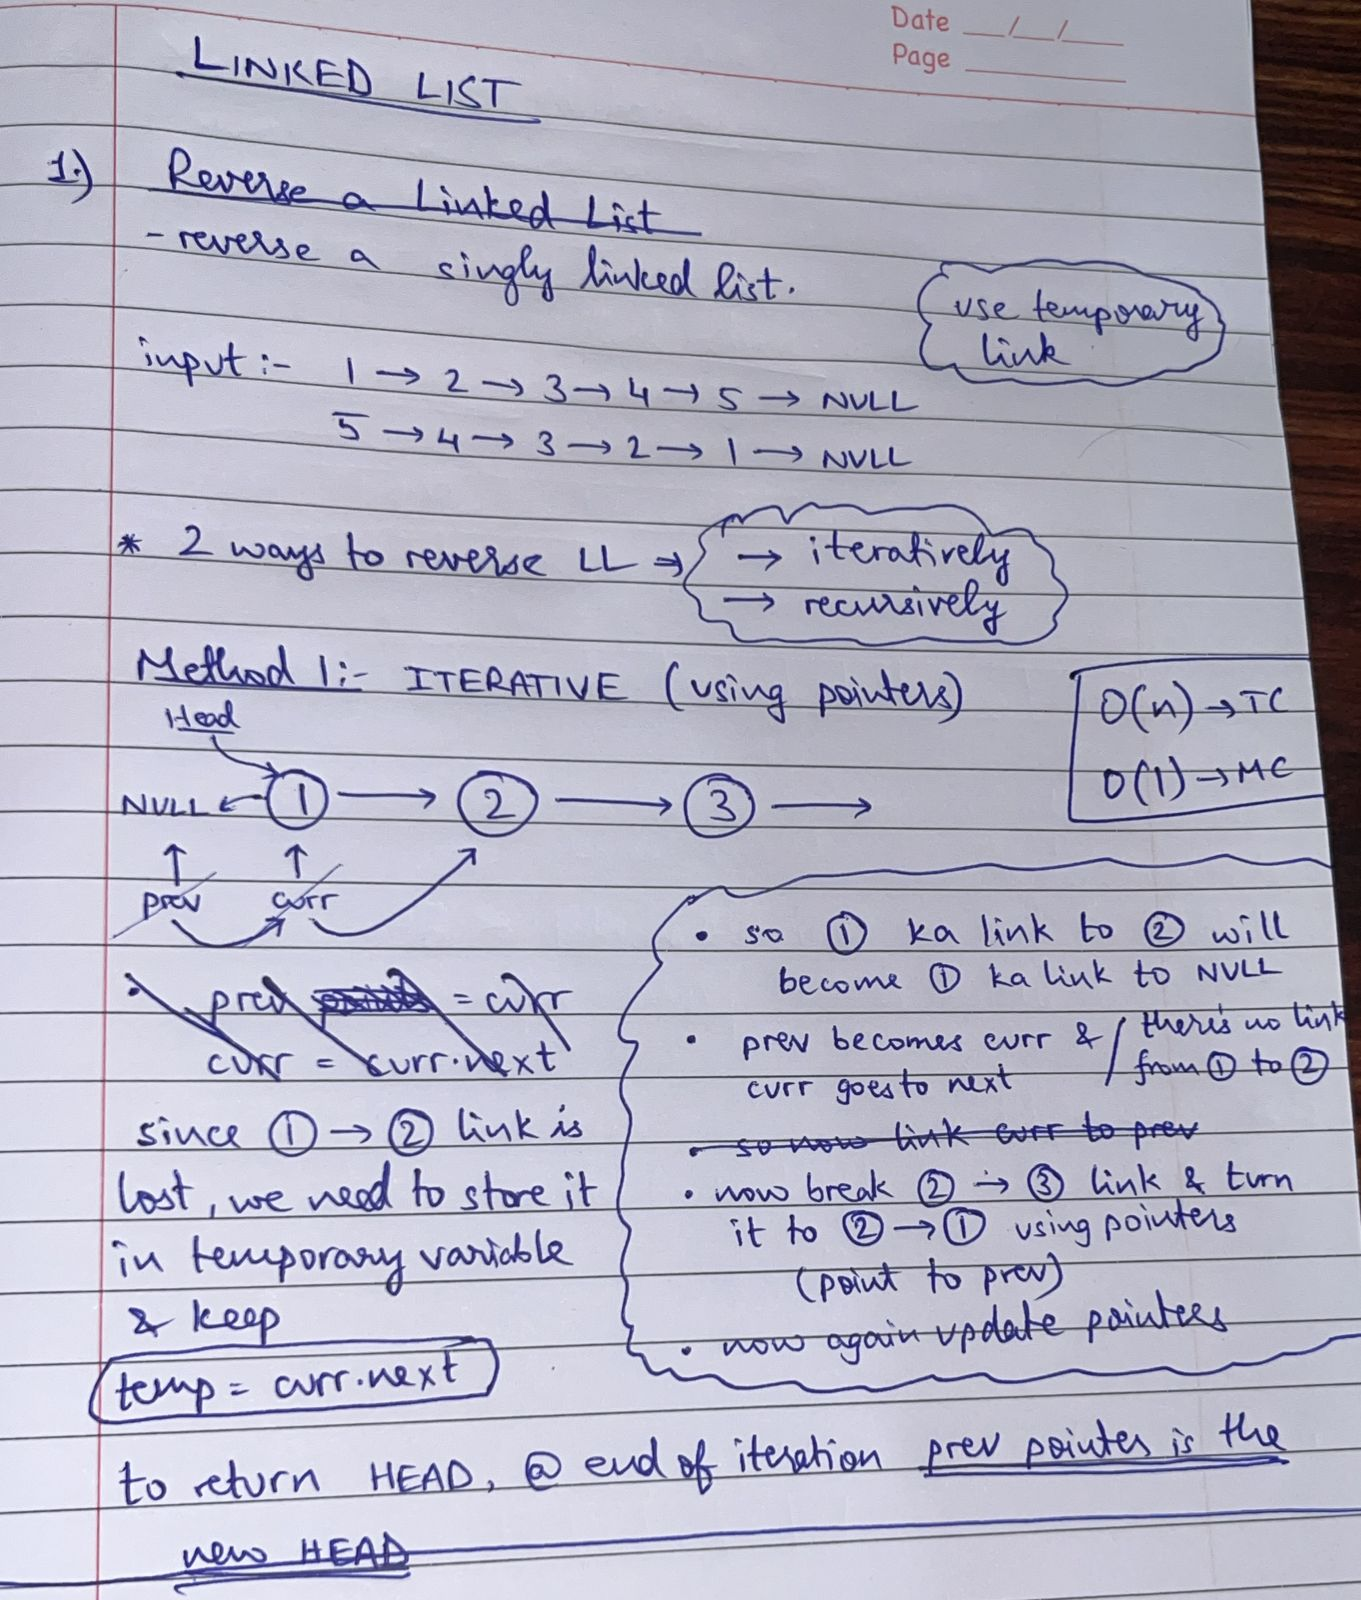 Date __/__/__
Page ______
LINKED LIST
1.) Reverse a Linked List
- reverse a singly linked list.
use temporary
link
input :- 1 → 2 → 3 → 4 → 5 → NULL
5 → 4 → 3 → 2 → 1 → NULL
* 2 ways to reverse LL → → iteratively
→ recursively
Method 1:- ITERATIVE (using pointers)
O(n) → TC
O(1) → MC
Head
NULL ← 1 → 2 → 3 →
↑ ↑
prev curr
• prev = curr
curr = curr.next
since ① → ② link is
lost, we need to store it
in temporary variable
& keep
temp = curr.next
• so ① ka link to ② will
become ① ka link to NULL
• prev becomes curr & / there's no link
curr goes to next / from ① to ②
• so now link curr to prev
• now break ② → ③ link & turn
it to ② → ① using pointers
(point to prev)
• now again update pointers
to return HEAD, @ end of iteration prev pointer is the
new HEAD